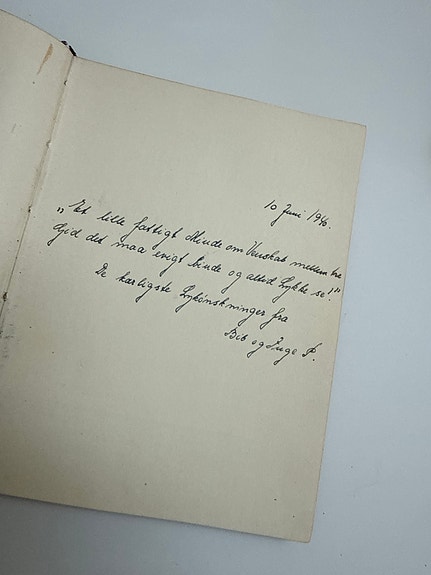 10 Juni 1946.
"Et lille fattigt Minde om Venskab mellem tre
Gid det maa evigt binde og altid Lykke se!"
De kærligste Lykønskninger fra
Bib og Inge P.